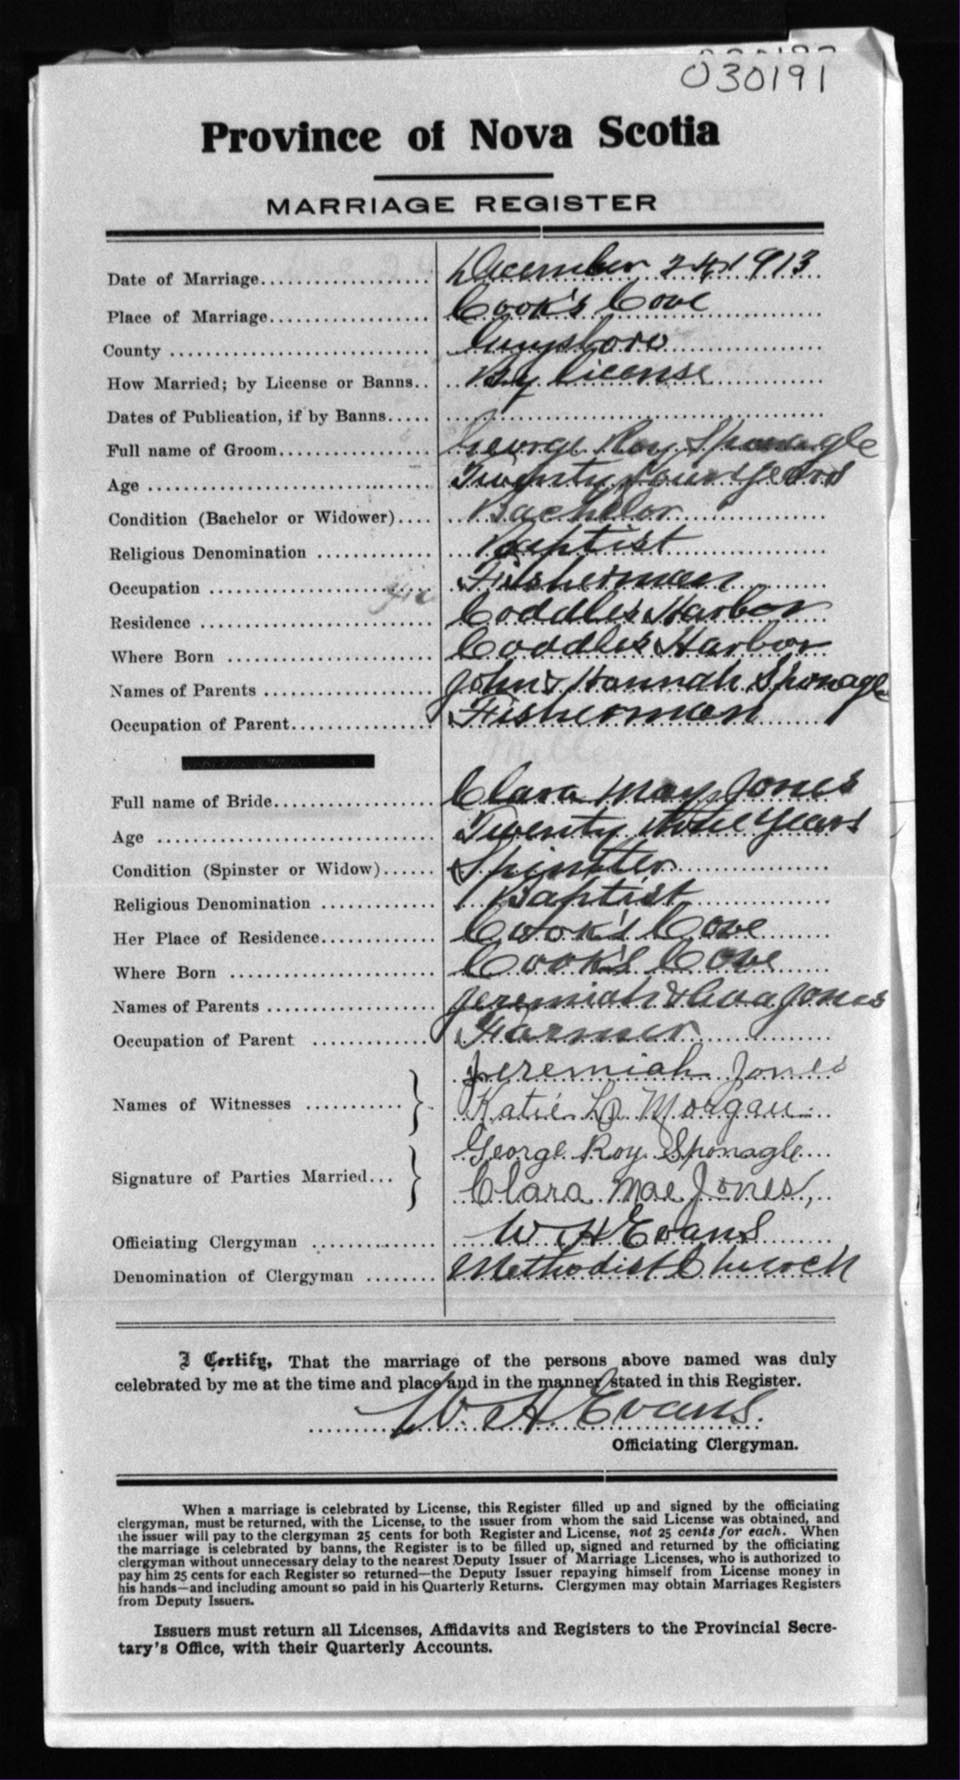 030191
Province of Nova Scotia
MARRIAGE REGISTER
Date of Marriage.................... December 24 1913
Place of Marriage................... Cook's Cove
County .............................. Guysboro
How Married; by License or Banns.. By License
Dates of Publication, if by Banns.....
Full name of Groom.................. George Roy Sponagle
Age .................................. Twenty four years
Condition (Bachelor or Widower).... Bachelor
Religious Denomination ............. Baptist
Occupation .......................... Fisherman
Residence ........................... Coddles Harbor
Where Born ........................ Coddles Harbor
Names of Parents ................... John & Hannah Sponagle
Occupation of Parent................ Fisherman
Full name of Bride................... Clara May Jones
Age ................................. Twenty years
Condition (Spinster or Widow)...... Spinster
Religious Denomination ............. Baptist
Her Place of Residence.............. Cook's Cove
Where Born ........................ Cook's Cove
Names of Parents ................... Jeremiah & Jones
Occupation of Parent .............. Farmer
Jeremiah Jones
Names of Witnesses ........... Katie Morgan
George Roy Sponagle
Signature of Parties Married... Clara Mae Jones,
Officiating Clergyman .............. W H Evans
Denomination of Clergyman ........ Methodist Church
I Certify, That the marriage of the persons above named was duly
celebrated by me at the time and place and in the manner stated in this Register.
W. H Evans.
Officiating Clergyman.
When a marriage is celebrated by License, this Register filled up and signed by the officiating
clergyman, must be returned, with the License, to the issuer from whom the said License was obtained, and
the issuer will pay to the clergyman 25 cents for both Register and License, not 25 cents for each. When
the marriage is celebrated by banns, the Register is to be filled up, signed and returned by the officiating
clergyman without unnecessary delay to the nearest Deputy Issuer of Marriage Licenses, who is authorized to
pay him 25 cents for each Register so returned—the Deputy Issuer repaying himself from License money in
his hands—and including amount so paid in his Quarterly Returns. Clergymen may obtain Marriages Registers
from Deputy Issuers.
Issuers must return all Licenses, Affidavits and Registers to the Provincial Secre-
tary's Office, with their Quarterly Accounts.